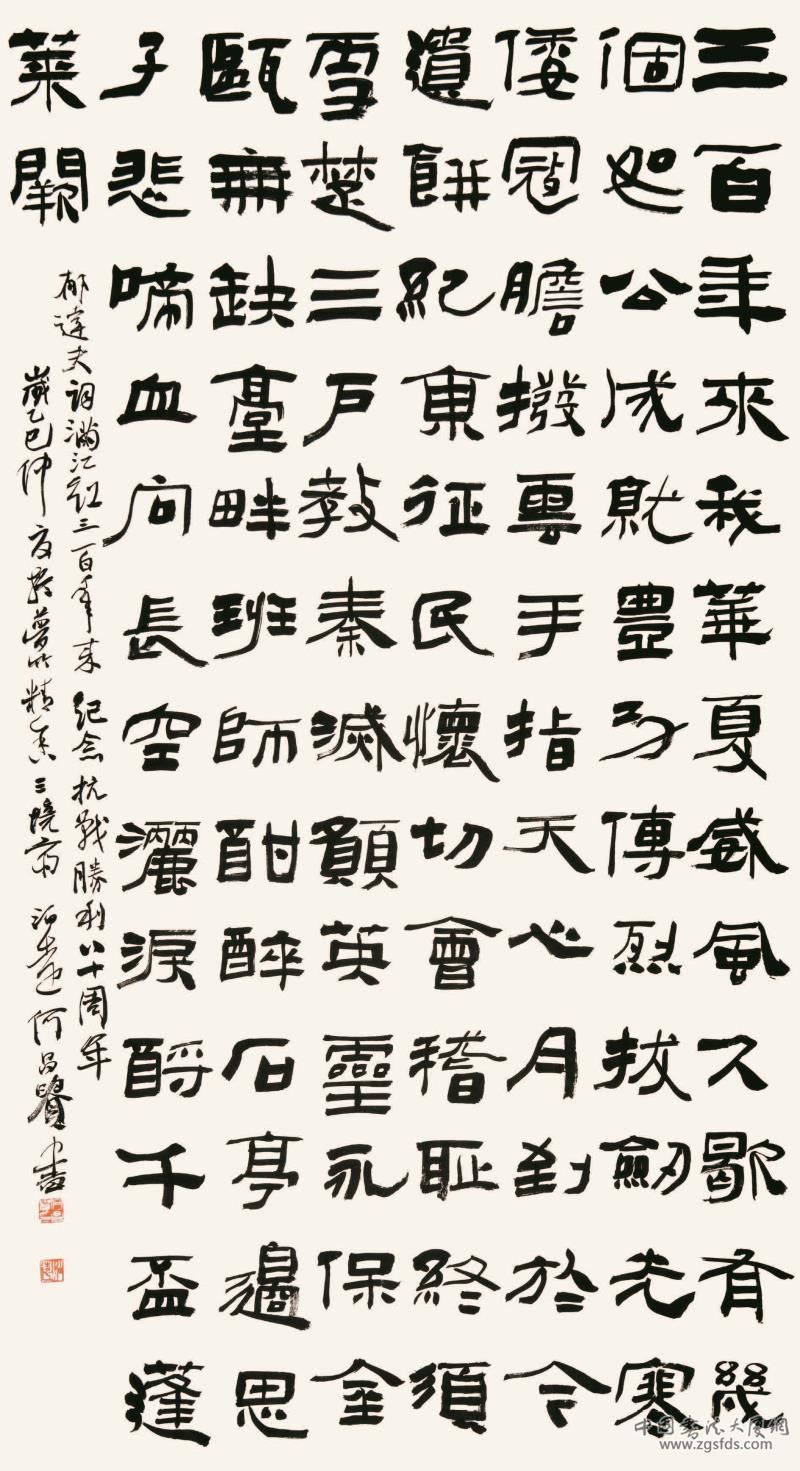 三百年來我華夏威風久歇有幾
個如公成就豊功傳烈拔劒光寒
倭寇膽撥雲手指天心月到於今
遺餅紀東征民懷切會稽恥終須
雪楚三戶教秦滅願英靈永保金
甌無缺臺畔班師酣醉石亭邊思
子悲啼血向長空灑淚酹千盃蓬
萊闕
郁達夫詞滿江紅三百年來紀念抗戰勝利八十周年
歲乙巳仲夏於夢精舍三境齋何昌書
中国书法大厦網
www.zgsfds.com